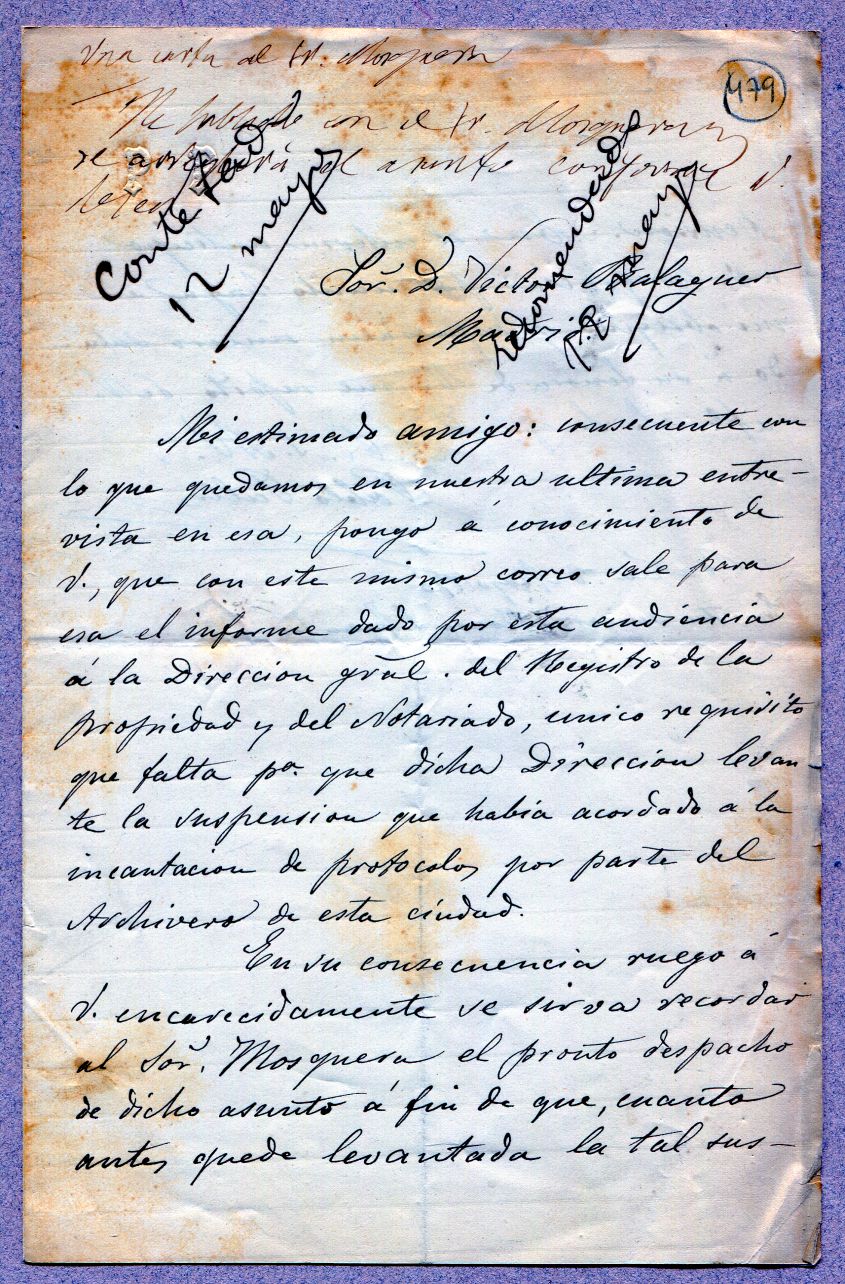 Una carta al Sr. Mosquera
479
He hablado con el Sr. Mosquera y
se arreglará el asunto conforme V.
desea
Contestada
12 mayo
recomendado
12 mayo
Sor. D. Victor Balaguer
Madrid
Mi estimado amigo: consecuente con
lo que quedamos en nuestra ultima entre-
vista en esa, pongo á conocimiento de
V., que con este mismo correo sale para
esa el informe dado por esta audiencia
á la Direccion gral. del Registro de la
propiedad y del Notariado, unico requisito
que falta pa. que dicha Dirección levan-
te la suspension que había acordado á la
incautacion de protocolos por parte del
Archivero de esta ciudad.
En su consecuencia ruego á
V. encarecidamente se sirva recordar
al Sor. Mosquera el pronto despacho
de dicho asunto á fin de que, cuanto
antes quede levantada la tal sus-